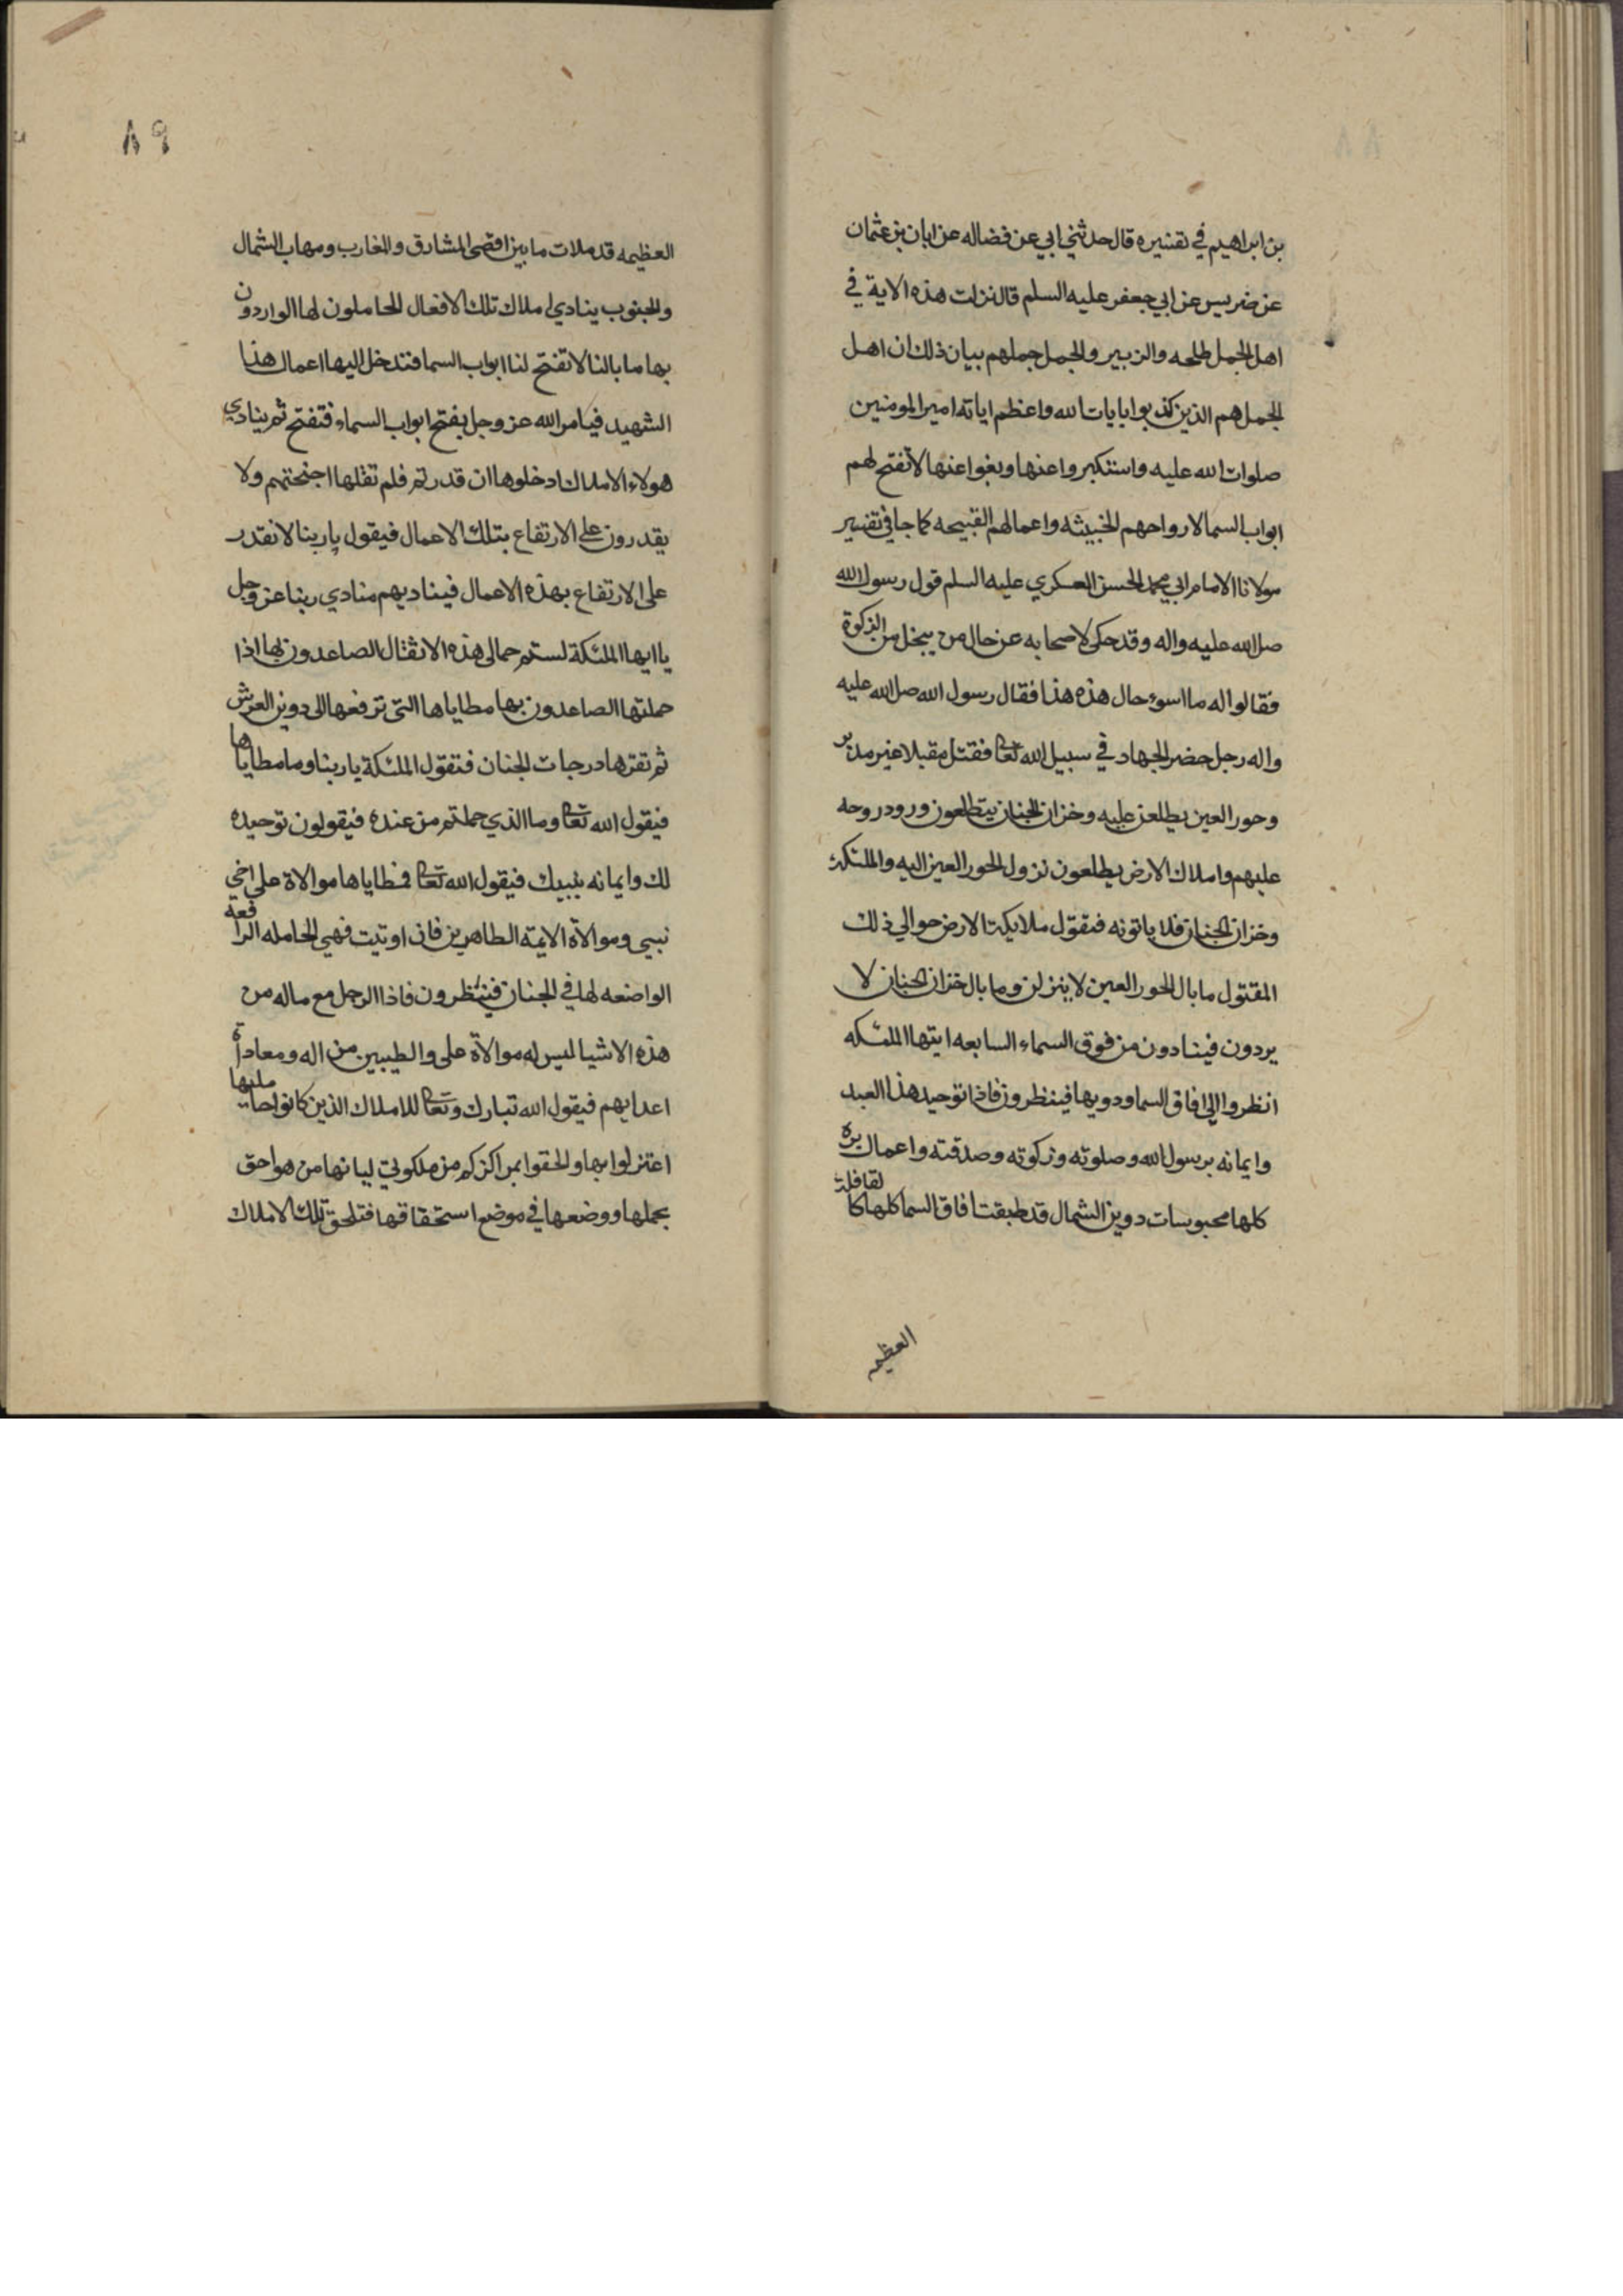 بن ابراهيم في تفسيره قال حدثني ابي عن فضاله عن ابان بن عثمان
عن ضريس عن ابي جعفر عليه السلم قال نزلت هذه الاية في
اهل الجمل طلحه والزبير والجمل جملهم بيان ذلك ان اهل
الجمل هم الذين كذبوا بايات الله واعظم اياته امير المومنين
صلوات الله عليه واستكبروا عنها وبغوا عنها لا تفتح لهم
ابواب السما لارواحهم الخبيثه واعمالهم القبيحه كما جا في تفسير
مولانا الامام ابي محمد الحسن العسكري عليه السلم قول رسول الله
صل الله عليه واله وقد حكى لاصحابه عن حال من يبخل من الزكوة
فقالوا له ما اسوء حال هذه هذا فقال رسول الله صل الله عليه
واله رجل حضر الجهاد في سبيل الله تعا فقتل مقبلا غير مدبر
وحور العين يطلعن عليه وخزان الجنان يتطلعون ورود روحه
عليهم واملاك الارض يطلعون نزول الحور العين اليه والملئكة
وخزان الجنان فلا ياتونه فتقول ملايكة الارض حوالي ذلك
المقتول ما بال الحور العين لا ينزلن وما بال خزان الجنان لا
يردون فينادون من فوق السماء السابعه ايتها الملئكه
انظروا الى افاق السما ودوينها فينظرون فاذا توحيد هذا العبد
وايمانه برسول الله وصلوته وزكوته وصدقته واعمال بره
كلها محبوسات دوين الشمال قد طبقت افاق السما كلها كا لقافلة
العظيمه
٨٩
العظيمه قد ملات ما بين اقصى المشارق والمغارب ومهاب الشمال
والجنوب ينادي املاك تلك الافعال الحاملون لها الواردون
بها ما بالنا لا تفتح لنا ابواب السما فندخل اليها اعمال هذا
الشهيد فيامر الله عز وجل بفتح ابواب السماء فتفتح ثم ينادي
هولاء الاملاك ادخلوها ان قدرتم فلم تقلها اجنحتهم ولا
يقدرون على الارتفاع بتلك الاعمال فيقول يا ربنا لا نقدر
على الارتفاع بهذه الاعمال فيناديهم منادي ربنا عز وجل
يا ايها الملئكة لستم حمالى هذه الاثقال الصاعدون بها اذا
حملتها الصاعدون بها مطاياها التي ترفعها الى دوين العرش
ثم تقرها درجات الجنان فتقول الملئكة يا ربنا وما مطاياها
فيقول الله تعا وما الذي حملتم من عنده فيقولون توحيده
لك وايمانه بنبيك فيقول الله تعا فمطاياها موالاة على اخي
نبيي وموالاة الايمة الطاهرين فان اوتيت فهي الحامله الرافعه
الواضعه لها في الجنان فينظرون فاذا الرجل مع ماله من
هذه الاشيا ليس له موالاة على والطيبين من اله ومعاداة
اعدايهم فيقول الله تبارك وتعا للاملاك الذين كانوا حامليها
اعتزلوا بها والحقوا بمراكزكم من ملكوتي لياتها من هو احق
بحملها ووضعها في موضع استحقاقها فتلحق تلك الاملاك